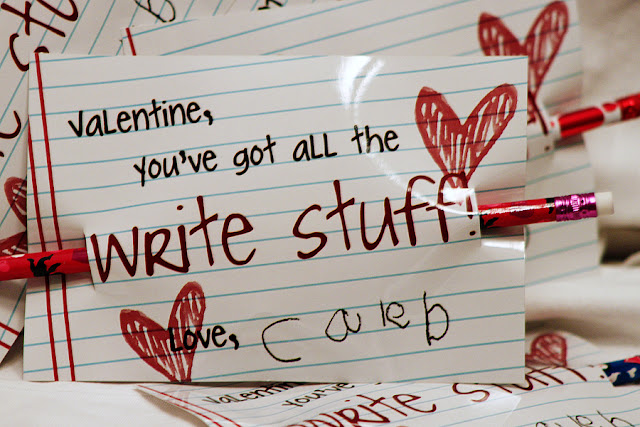 Valentine,
you've got all the
Write stuff!
Love, Caleb
Valentine
you've
Write stuff.